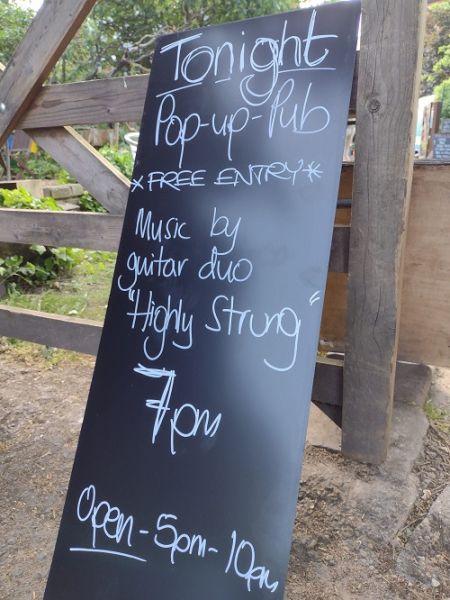 Tonight
Pop-up-Pub
*FREE ENTRY*
Music by
guitar duo
"Highly Strung"
7pm
Open - 5pm - 10pm